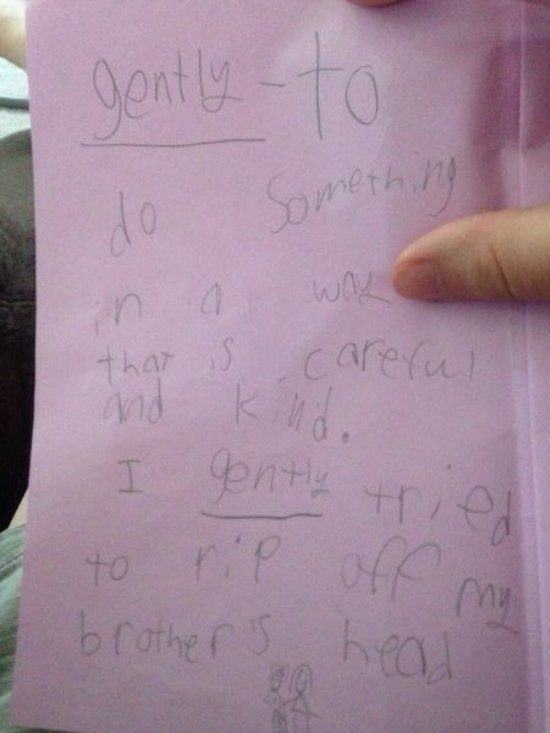 gently - to
do something
in a way
that is careful
and kind.
I gently tried
to rip off my
brother's head